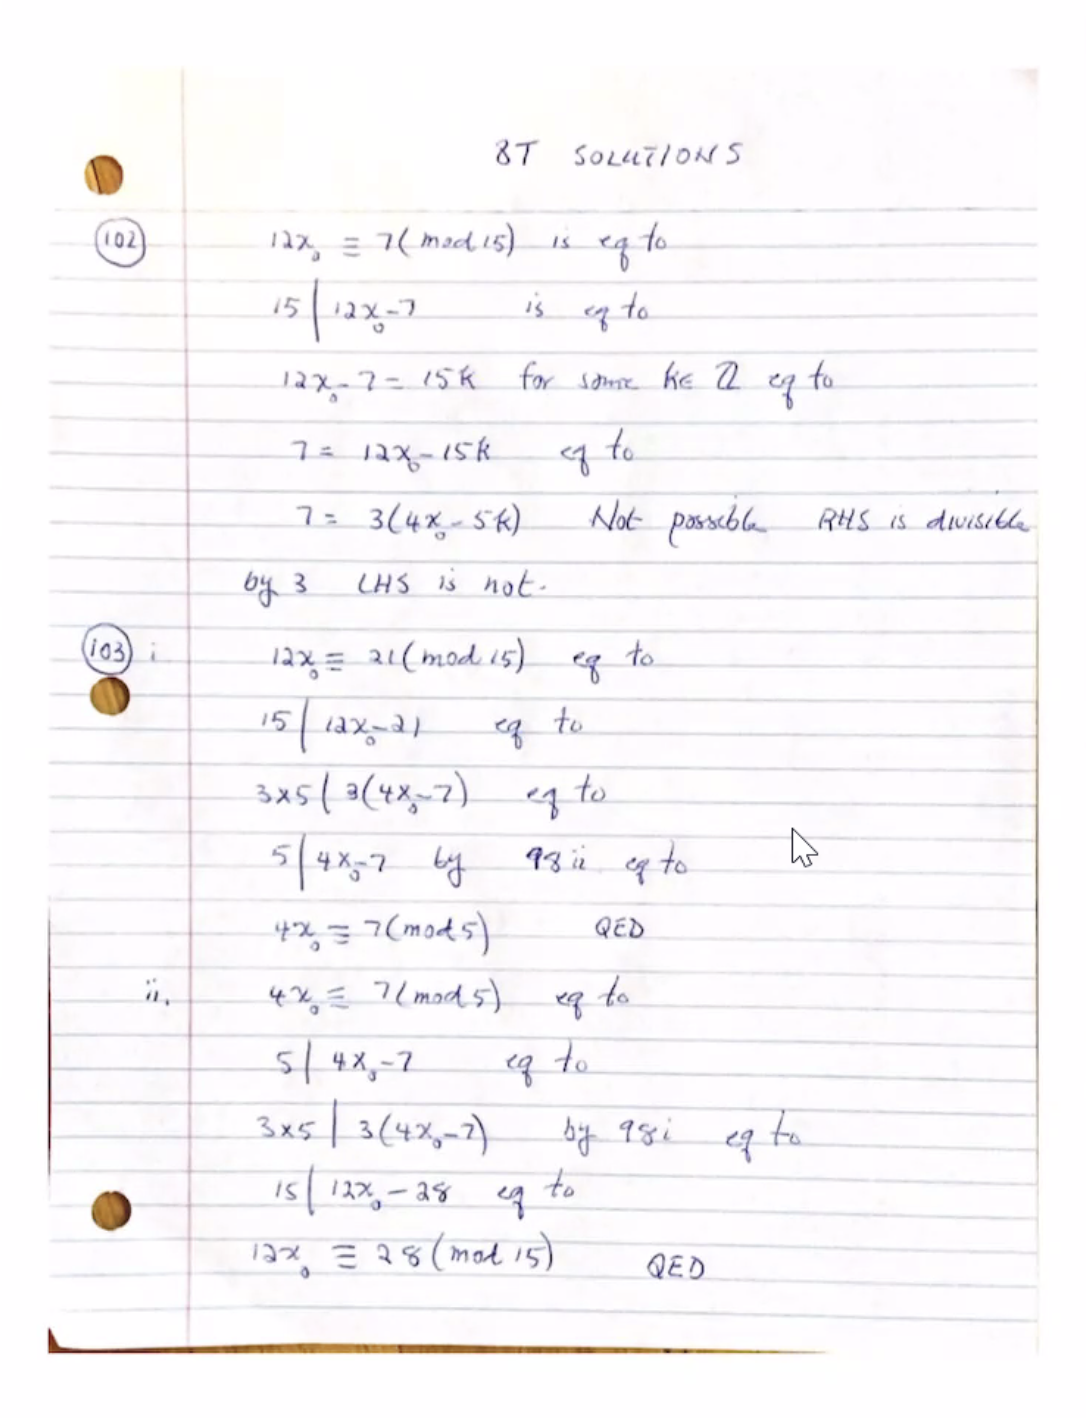 8T SOLUTIONS
102 12x₀ ≡ 7(mod 15) is eq to
15 | 12x₀-7 is eq to
12x₀-7 = 15k for some k∈ ℤ eq to
7 = 12x₀-15k eq to
7 = 3(4x₀-5k) Not possible RHS is divisible
by 3 LHS is not.
103 i 12x₀ ≡ 21(mod 15) eq to
15 | 12x₀-21 eq to
3x5 | 3(4x₀-7) eq to
5 | 4x₀-7 by 98 ii eq to
4x₀ ≡ 7(mod 5) QED
ii. 4x₀ ≡ 7(mod 5) eq to
5 | 4x₀-7 eq to
3x5 | 3(4x₀-7) by 98i eq to
15 | 12x₀-28 eq to
12x₀ ≡ 28(mod 15) QED